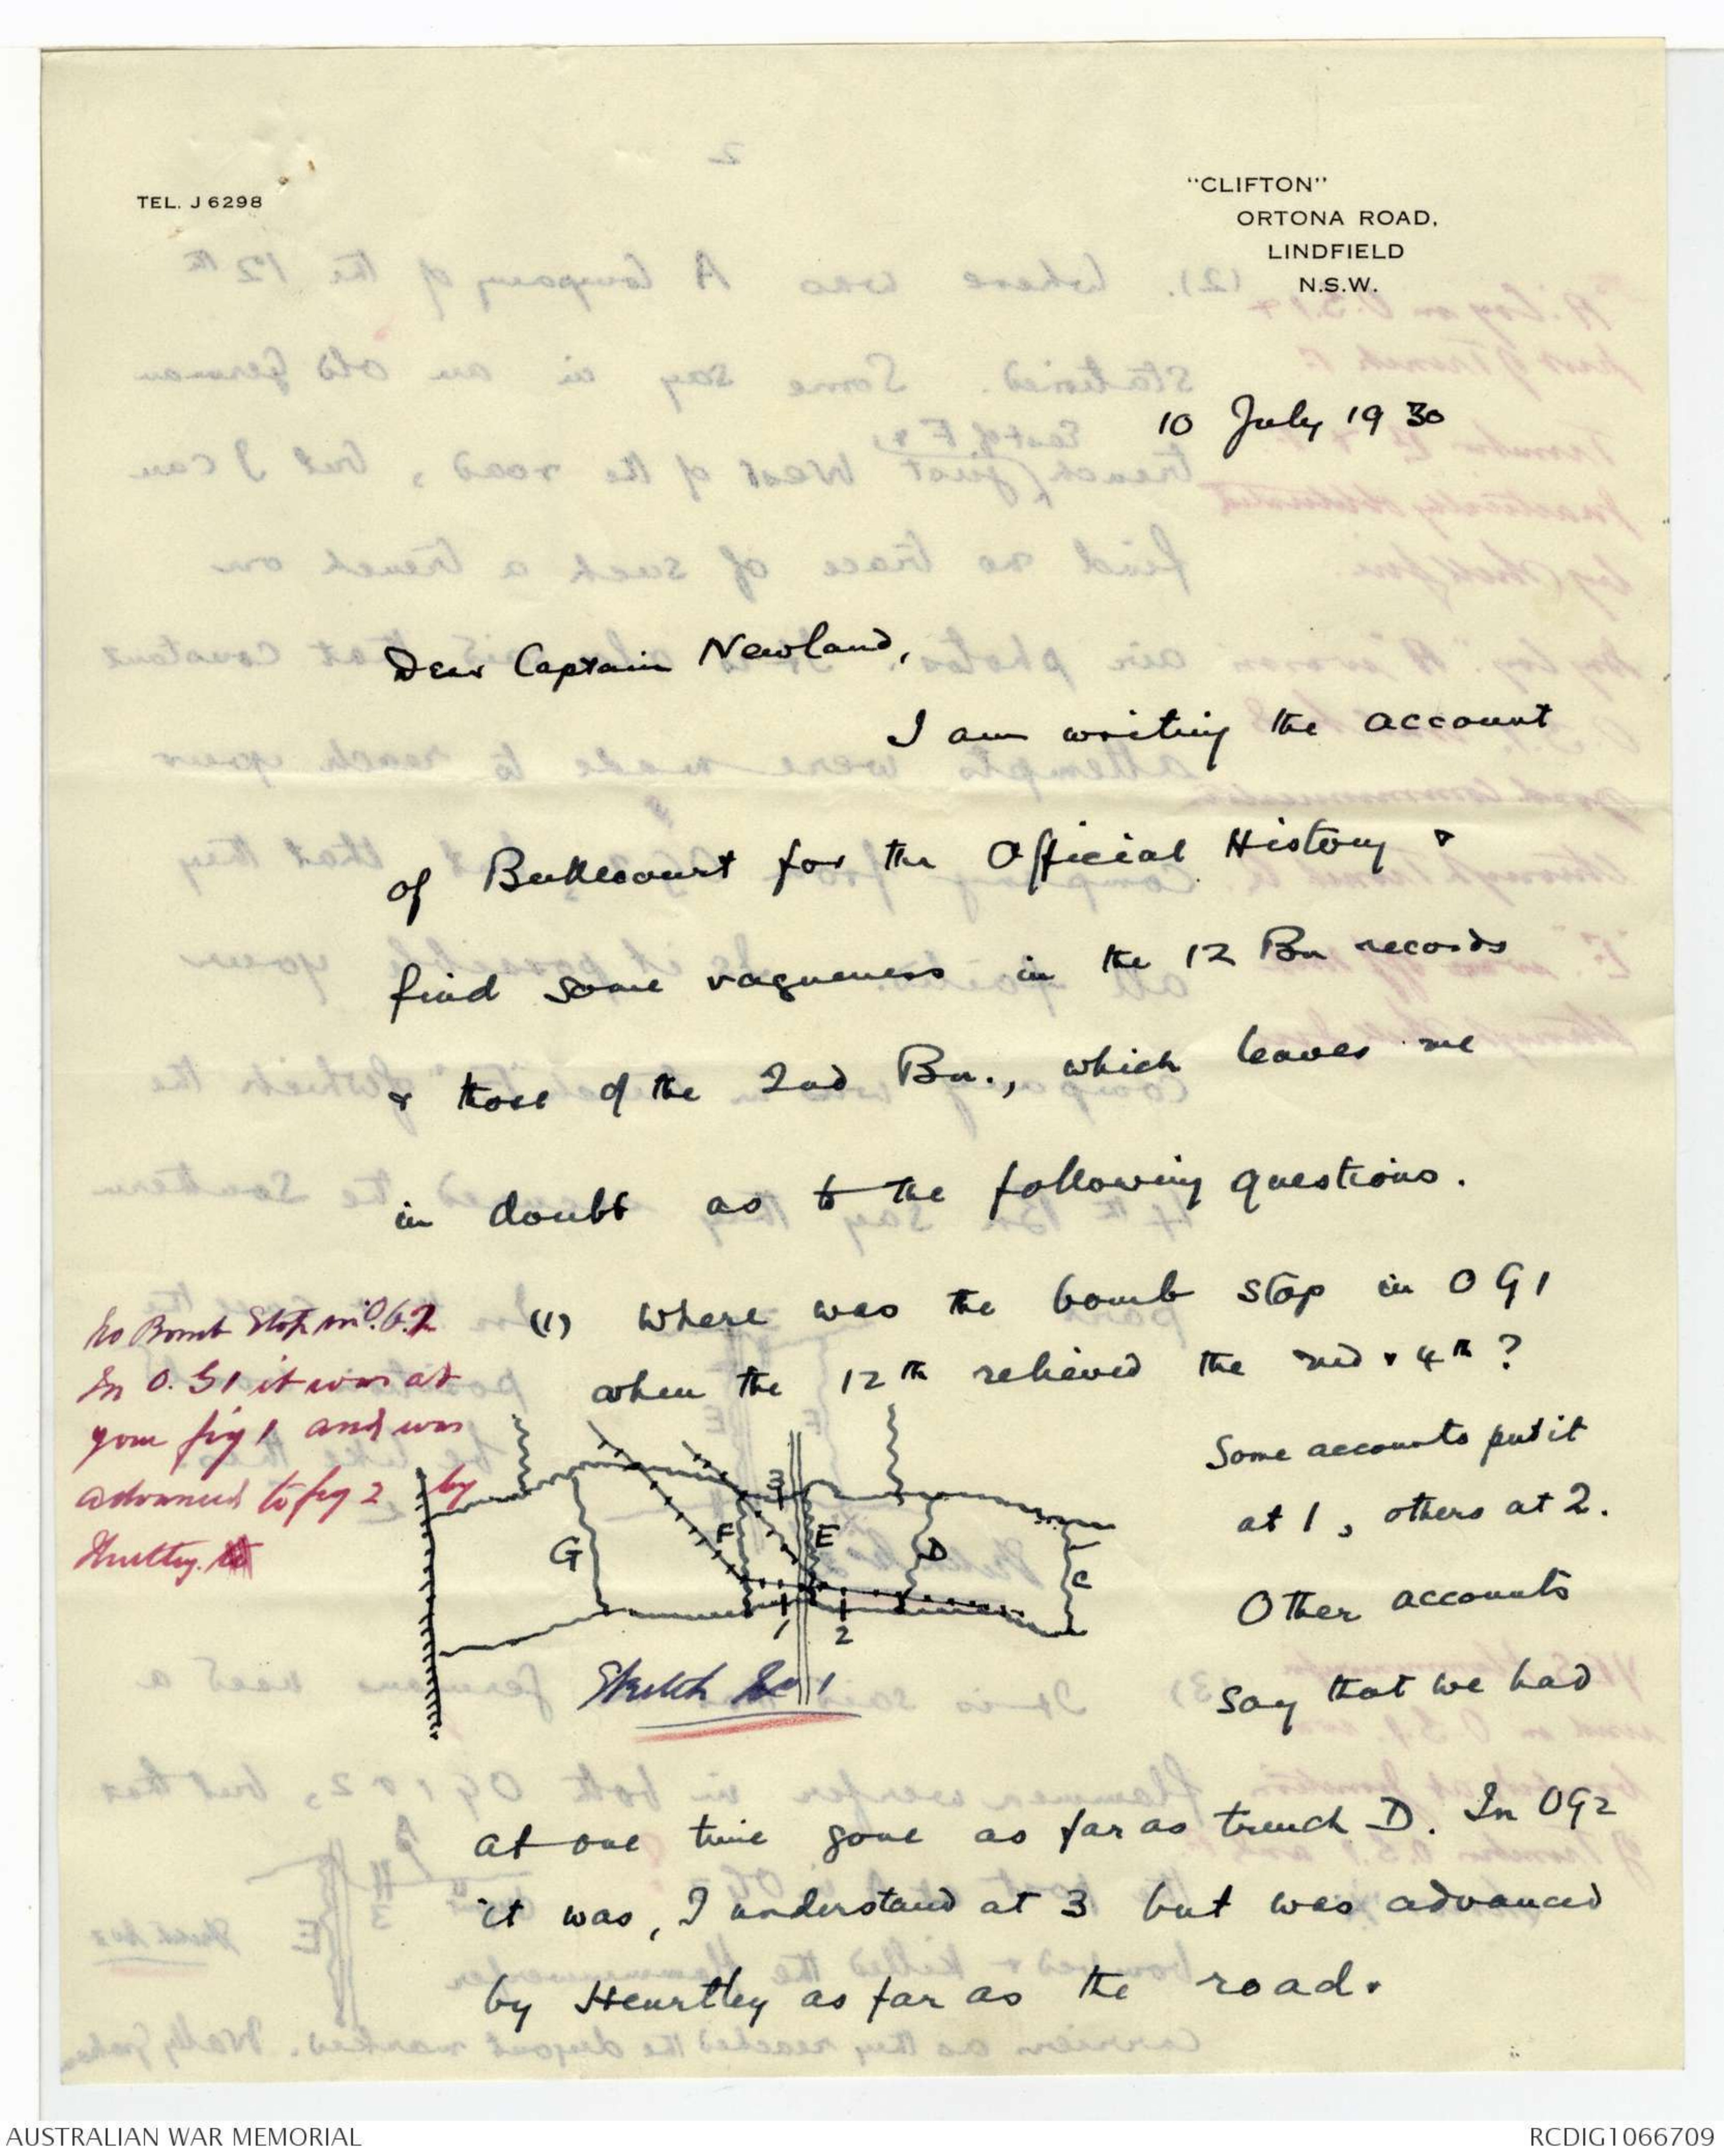 TEL. J 6298
"CLIFTON"
ORTONA ROAD,
LINDFIELD
N.S.W.
10 July 1930
Dear Captain Newland,
I am writing the account
of Bullecourt for the Official History &
find some vagueness in the 12 Bn records
& those of the 2nd Bn., which leaves me
in doubt as to the following questions.
(1) Where was the bomb stop in OG1
when the 12th relieved the 2nd & 4th?
Some accounts put it
at 1, others at 2.
Other accounts
say that we had
at one time gone as far as trench D. In OG2
it was, I understand at 3 but was advanced
by Heurtley as far as the road.
No Bomb Stop in O.G.2
In O.G1 it was at
your fig 1 and was
advanced to fig 2 by
Heurtley.
3
G
F
E
D
C
1
2
Sketch No 1
AUSTRALIAN WAR MEMORIAL
RCDIG1066709